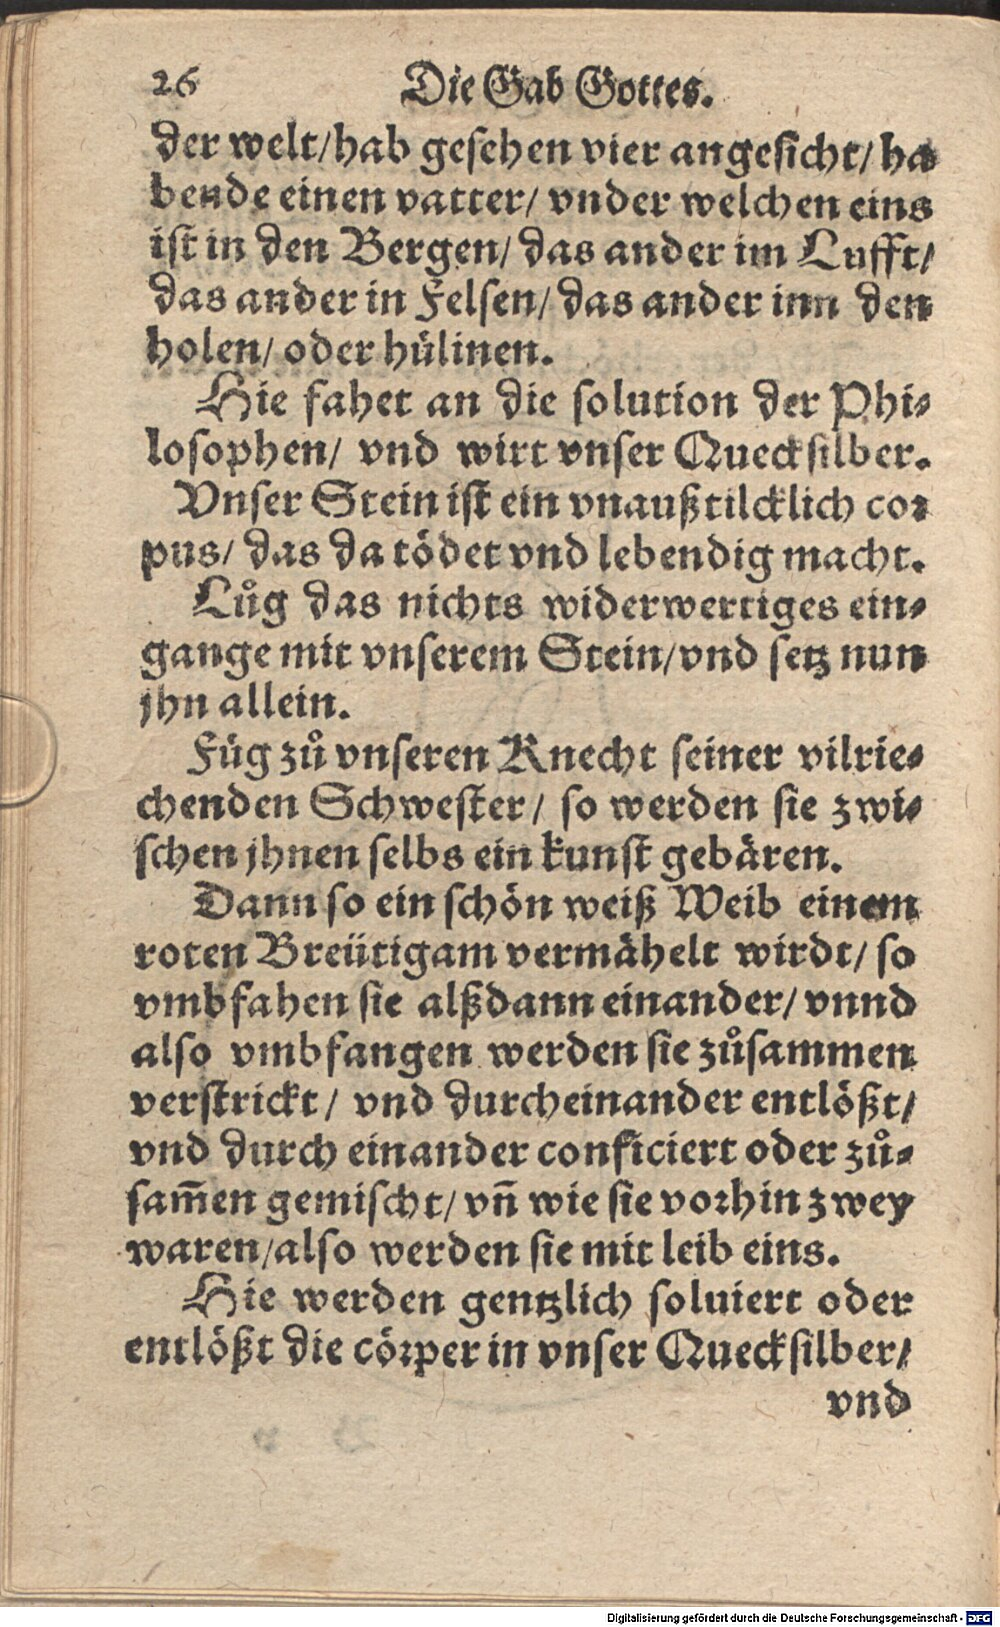 26 Die Gab Gottes.
der welt/hab gesehen vier angesicht/ha
bende einen vatter/ vnder welchen eins
ist in den Bergen/ das ander im Lufft/
das ander in Felsen/ das ander inn den
holen/ oder hülinen.
Hie fahet an die solution der Phi⸗
losophen/ vnd wirt vnser Quecksilber.
Vnser Stein ist ein vnaußtilcklich cor
pus/ das da tödet vnd lebendig macht.
Lůg das nichts widerwertiges ein⸗
gange mit vnserem Stein/vnd setz nun
jhn allein.
Füg zů vnseren Knecht seiner vilrie⸗
chenden Schwester/ so werden sie zwi⸗
schen jhnen selbs ein kunst gebären.
Dann so ein schön weiß Weib einem
roten Breütigam vermähelt wirdt/ so
vmbfahen sie alßdann einander/ vnnd
also vmbfangen werden sie zůsammen
verstrickt/ vnd durcheinander entlößt/
vnd durch einander conficiert oder zů⸗
sam̄en gemischt/ vn̄ wie sie vorhin zwey
waren/also werden sie mit leib eins.
Hie werden gentzlich soluiert oder
entlößt die cörper in vnser Quecksilber/
vnd
Digitalisierung gefördert durch die Deutsche Forschungsgemeinschaft - DFG